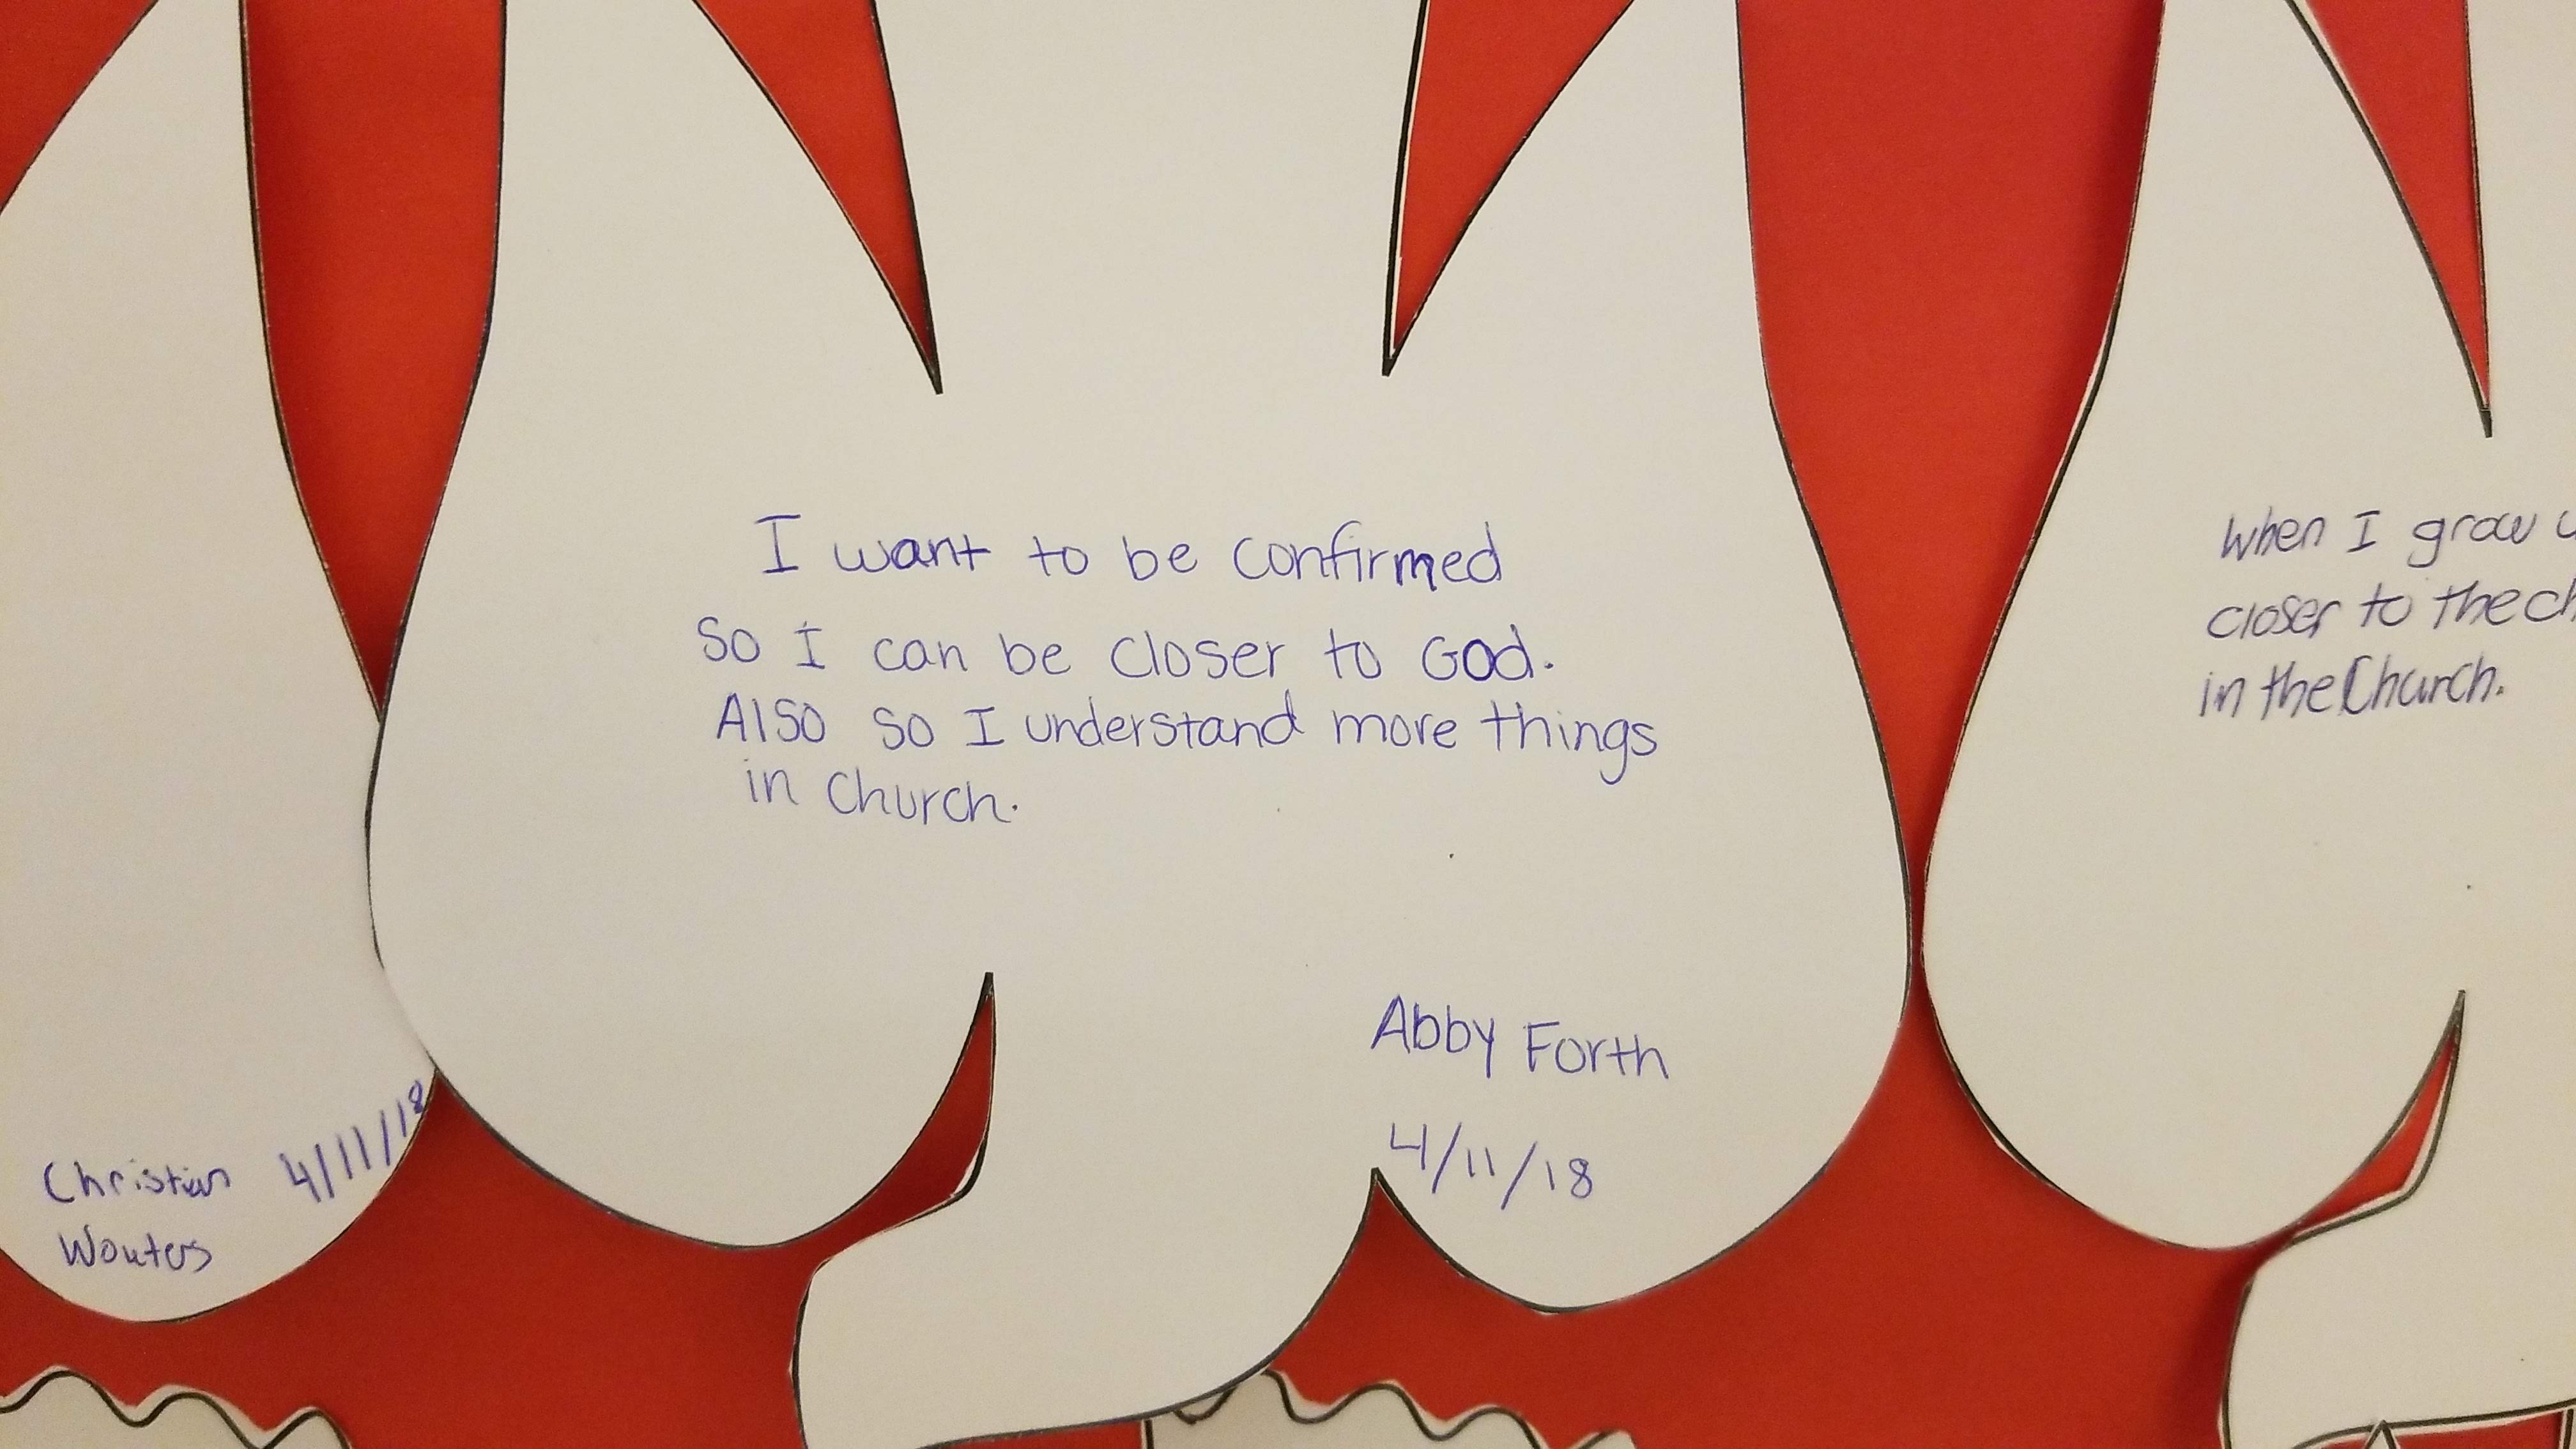 I want to be confirmed
So I can be closer to God.
Also so I understand more things
in church.
Abby Forth
4/11/18
Christian 4/11/18
Wouters
When I grow
closer to the
in the Church.